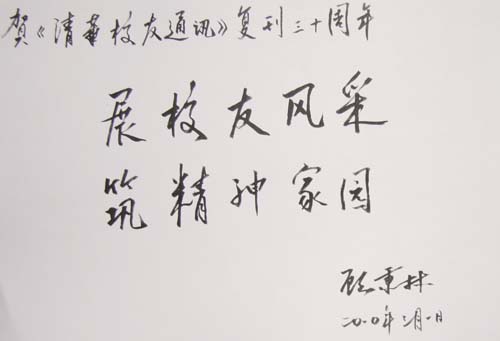 贺《清华校友通讯》复刊三十周年
展校友风采
筑精神家园
顾秉林
二〇一〇年三月一日